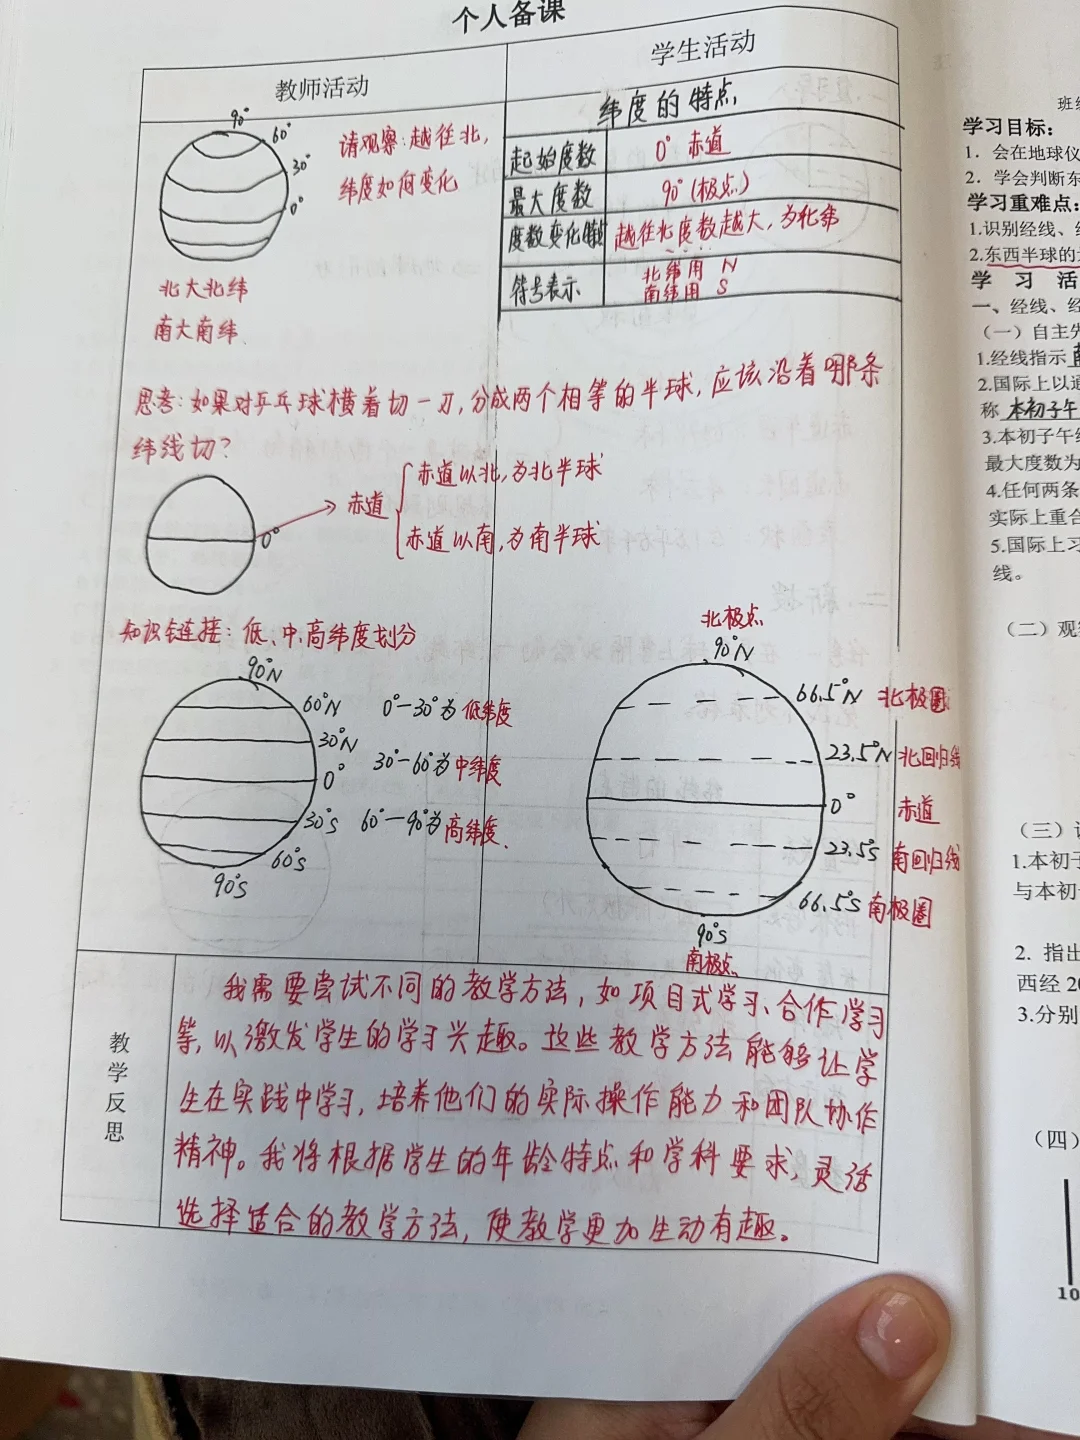 个人备课
教师活动
学生活动
90°
60°
30°
0°
请观察:越往北,
纬度如何变化
北大北纬
南大南纬
纬度的特点
起始度数 0° 赤道
最大度数 90°(极点)
度数变化特 越往北度数越大,为北纬
符号表示 北纬用 N
南纬用 S
思考:如果对乒乓球横着切一刀,分成两个相等的半球,应该沿着哪条
纬线切?
0°
赤道
赤道以北,为北半球
赤道以南,为南半球
知识链接:低、中、高纬度划分
90°N
60°N
30°N
0°
30°S
60°S
90°S
0°—30°为低纬度
30°—60°为中纬度
60°—90°为高纬度.
北极点
90°N
66.5°N 北极圈
23.5°N 北回归线
0° 赤道
23.5°S 南回归线
66.5°S 南极圈
90°S
南极点
教学反思
我需要尝试不同的教学方法,如项目式学习、合作学习
等,以激发学生的学习兴趣。这些教学方法能够让学
生在实践中学习,培养他们的实际操作能力和团队协作
精神。我将根据学生的年龄特点和学科要求,灵活
选择适合的教学方法,使教学更加生动有趣。
班级
学习目标:
1. 会在地球仪
2. 学会判断东
学习重难点:
1.识别经线、
2.东西半球的
学 习 活
一、经线、经
(一)自主
1.经线指示
2.国际上以通
称 本初子午
3.本初子午
最大度数为
4.任何两条
实际上重合
5.国际上习
线。
(二)观
(三)
1.本初子
与本初
2. 指出
西经 20
3.分别
(四)
10